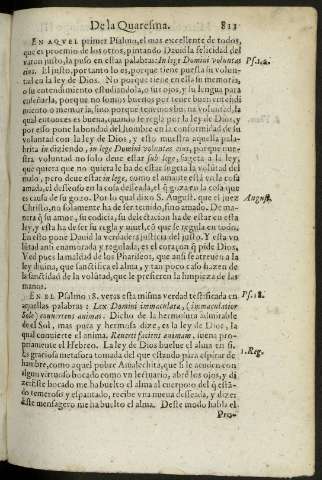 De la Quaresma. 811
EN AQVEL primer Psalmo, el mas excellente de todos,
que es proemio de los otros, pintando Dauid la felicidad del
varon justo, la puso en estas palabras: In lege Domini voluntas Ps.1.2.
eius. El justo, por tanto lo es, porque tiene puesta su volun-
tad en la ley de Dios. No porque tiene en essa su memoria,
o su entendimiento estudiandola, o sus ojos, y su lengua para
enseñarla, porque no somos buenos por tener buen entendi
miento o memoria, sino porque tenemos buena voluntad, la
qual entonces es buena, quando se regla por la ley de Dios, y
por esso pone la bondad del hombre en la conformidad de su
voluntad con la ley de Dios, y esto muestra aquella pala-
brita de diziendo, in lege Domini voluntas eius, porque nue-
stra voluntad no solo deue estar sub lege, sugeta a la ley,
que quiera que no quiera le ha de estar sugeta la volũtad del
malo, pero deue estar in lege, como el amante está en la cosa
amada, el desseoso en la cosa desseada, el q̃ goza en la cosa que
es causa de su gozo. Por lo qual dixo S. August. que el juez August.
Christo, no solamente ha de ser temido, sino amado. De mane
ra q̃ su amor, su codicia, su delectacion ha de estar en esta
ley, y esta ha de ser su regla y niuel, cõ que se regula en todo.
En esto pone Dauid la verdadera justicia del justo. Y esta vo
luntad assi enmendada y regulada, es el coraçon q̃ pide Dios,
Ved pues la maldad de los Phariseos, que assi se atreuẽ a la
ley diuina, que sanctifica el alma, y tan poco caso hazen de
la sanctidad de la volũtad, que le prefieren la limpieza de las
manos.
EN EL Psalmo 18. veras esta misma verdad testificada en Ps.18.
aquellas palabras: Lex Domini immaculata, (immaculatior
Sole) conuertens animas. Dicho de la hermosura admirable
de el Sol, mas pura y hermosa dize, es la ley de Dios, la
qual conuierte el anima. Reuerti faciens animam, tiene pro-
priamente el Hebreo. La ley de Dios buelue el alma en si.
es graciosa metafora tomada del que estando para espirar de 1.Reg.
hambre, como aquel pobre Amalechita, que si le acuden con
algun virtuoso bocado como vn lectuario, abre los ojos, y di
ze: Este bocado me ha buelto el alma al cuerpo: o del q̃ está
do temeroso y espantado, recibe vna nueua desseada, y dize:
Este mensagero me ha buelto el alma. Deste modo habla el
Pro-